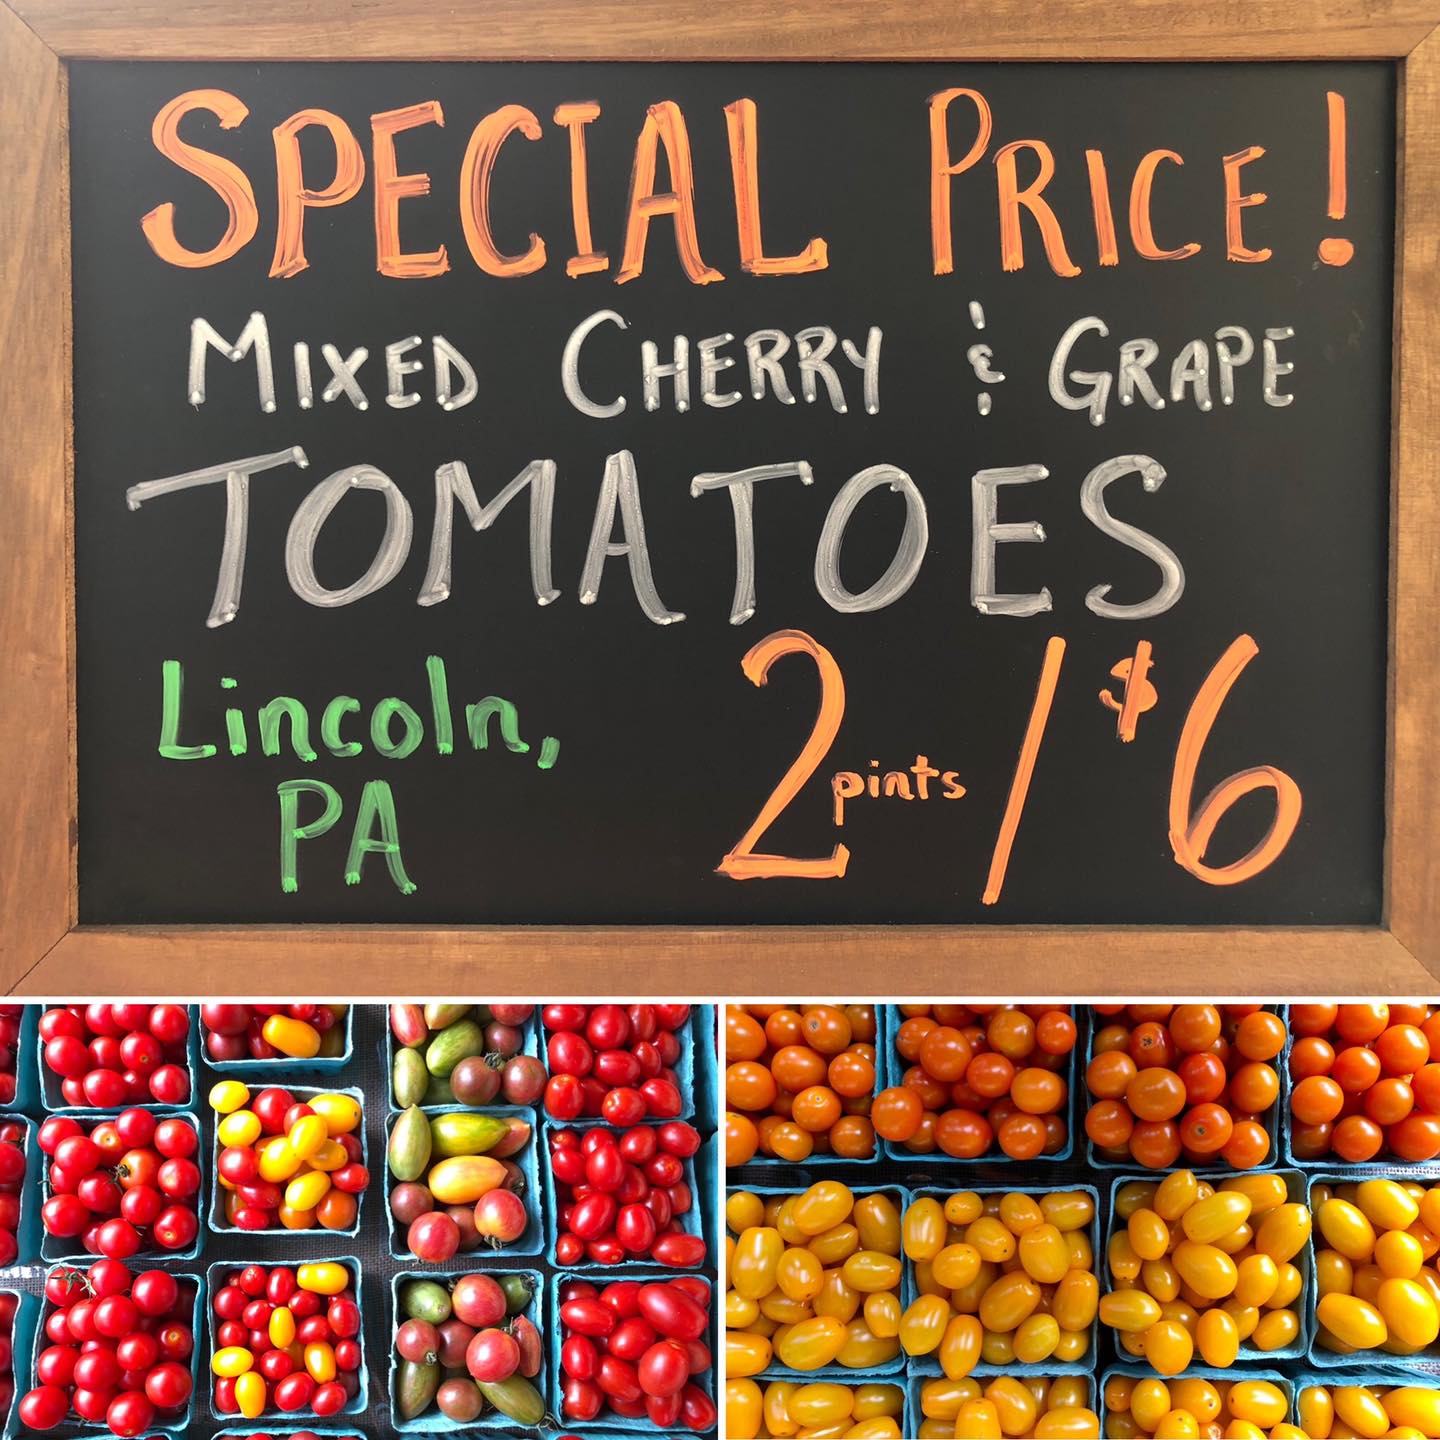 SPECIAL PRICE!
MIXED CHERRY & GRAPE
TOMATOES
Lincoln,
PA
2 pints / $6